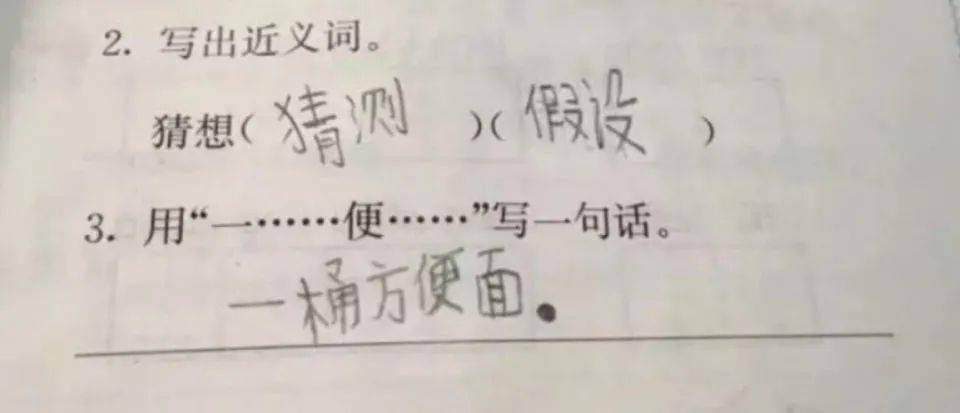 2. 写出近义词。
猜想(猜测)(假设)
3. 用“一……便……”写一句话。
一桶方便面.